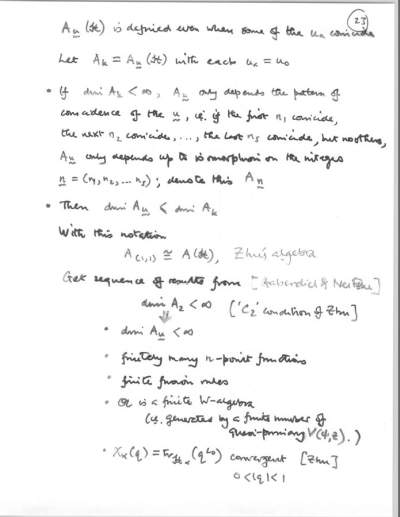 23
A_u(ℋ) is defined even when some of the u_α coincide
Let A_k = A_u(ℋ) with each u_α = u_0
• If dim A_k < ∞, A_u only depends the pattern of
coincidence of the u, i.e. if the first n_1 coincide,
the next n_2 coincide, ..., the last n_s coincide, but no others,
A_u only depends up to isomorphism on the integers
n = (n_1, n_2, ... n_s); denote this A_n
• Then dim A_u < dim A_k
With this notation
A_(1,1) ≅ A(ℋ), Zhu's algebra
Get sequence of results from [Gaberdiel & Neitzke]
dim A_2 < ∞ ['C_2' condition of Zhu]
⇓
• dim A_u < ∞
• finitely many n-point functions
• finite fusion rules
• is a finite W-algebra
(i.e. generated by a finite number of
quasi-primary V(ψ,z).)
• χ_α(q) = tr_ℋ_α(q^L_0) convergent [Zhu]
0<|q|<1